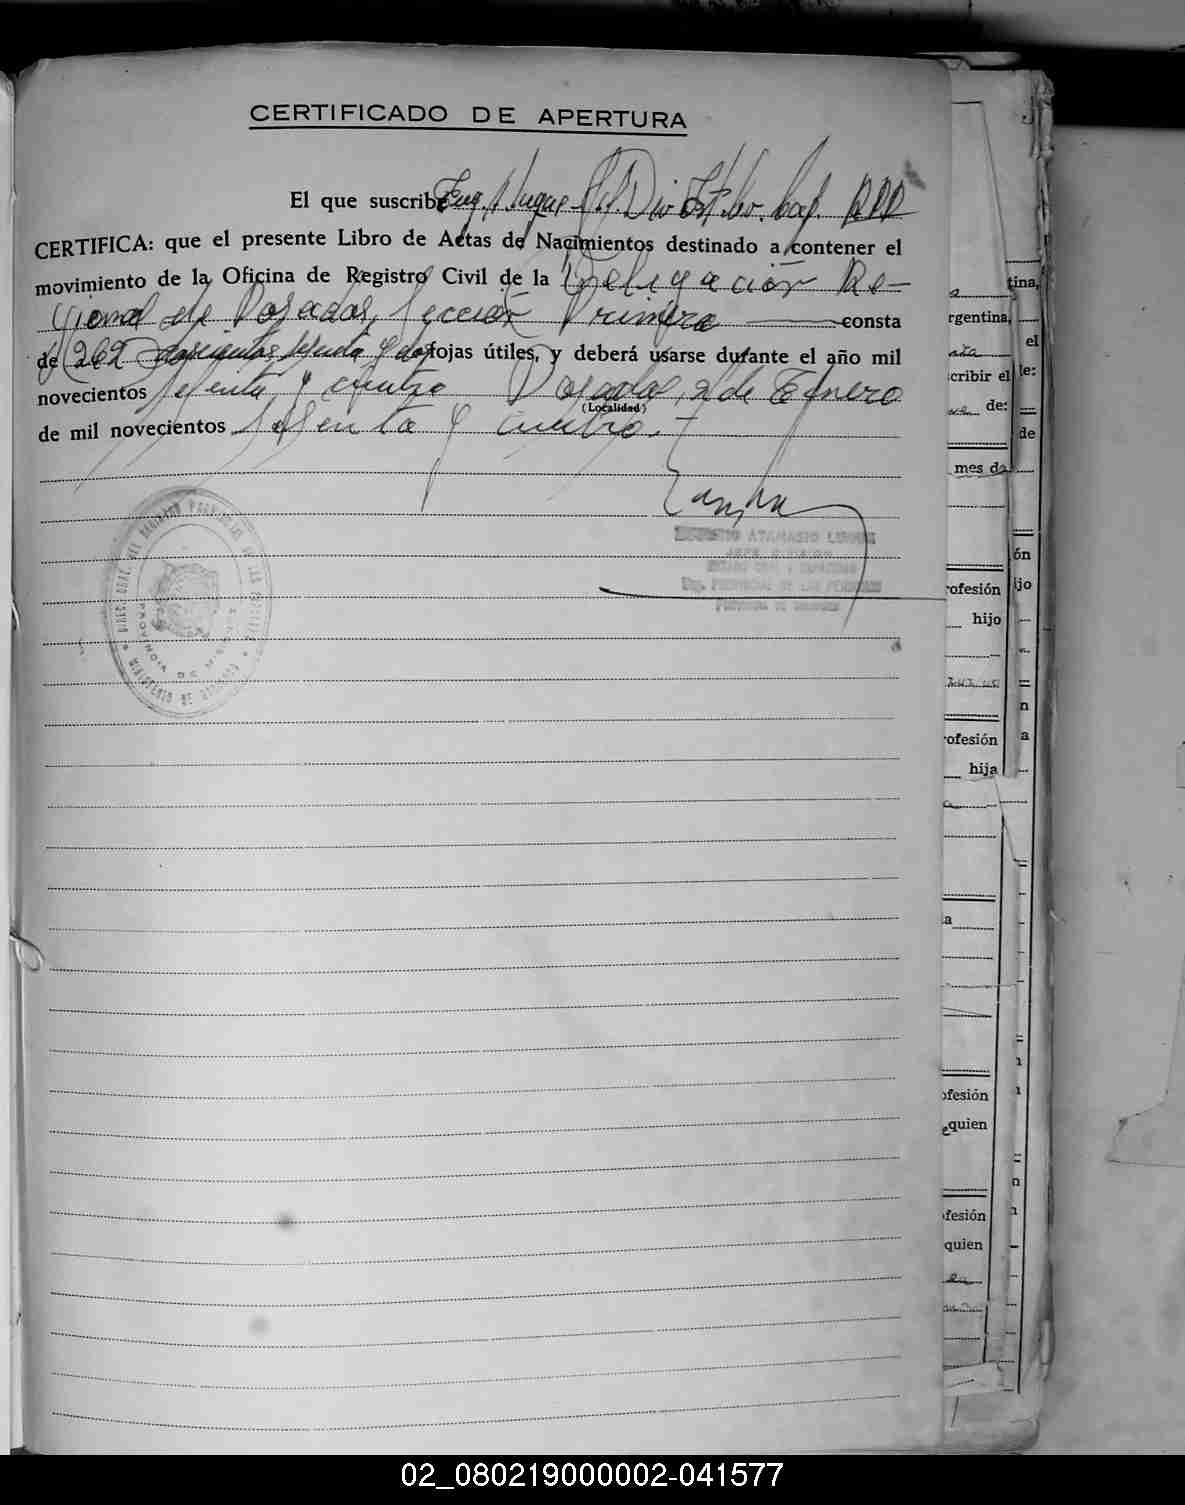 CERTIFICADO DE APERTURA
El que suscribe Eug. A. Luque Div. Est. Civ. Cap. RPP
CERTIFICA: que el presente Libro de Actas de Nacimientos destinado a contener el
movimiento de la Oficina de Registro Civil de la Delegación Re-
gional de Posadas, Sección Primera consta
de 262 doscientos sesenta y dos fojas útiles, y deberá usarse durante el año mil
novecientos sesenta y cuatro Posadas, 2 de Enero
(Localidad)
de mil novecientos sesenta y cuatro.
ATANASIO
JEFE DIVISION
ESTADO CIVIL Y CAPACIDAD
PROVINCIAL DE LAS PERSONAS
PROVINCIA DE MISIONES
tina,
rgentina,
el
cribir el
de:
de
mes de
ón
rofesión
ijo
hijo
rofesión
hija
ofesión
quien
fesión
quien
02_080219000002-041577